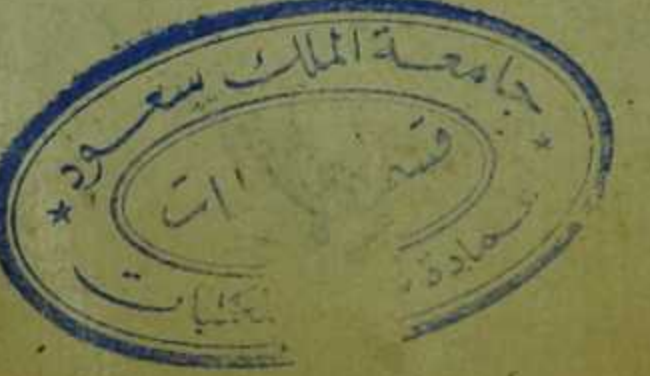 جامعة الملك سعود
قسم
عمادة
المكتبات